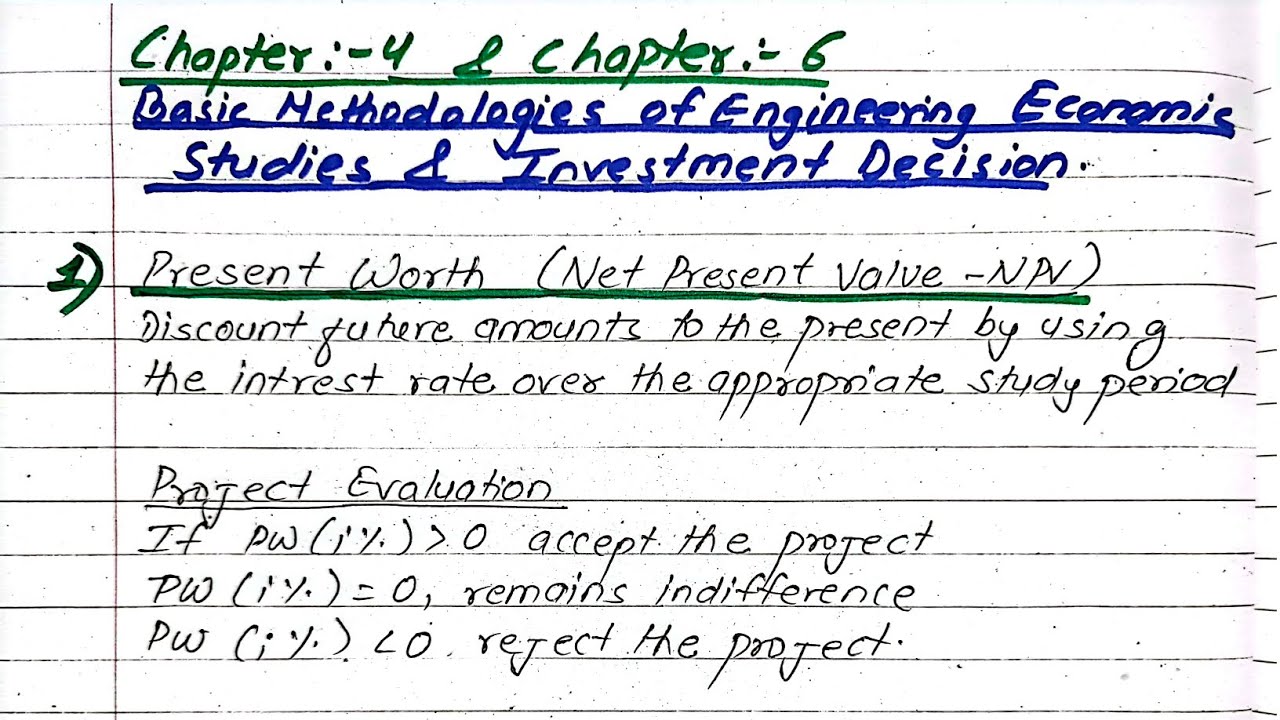 Chapter:-4 & Chapter:- 6
Basic Methodologies of Engineering Economic
Studies & Investment Decision.
1) Present Worth (Net Present Value -NPV)
Discount future amounts to the present by using
the intrest rate over the appropriate study period
Project Evaluation
If PW (i%) > 0 accept the project
PW (i%) = 0, remains indifference
PW (i%) < 0. reject the project.